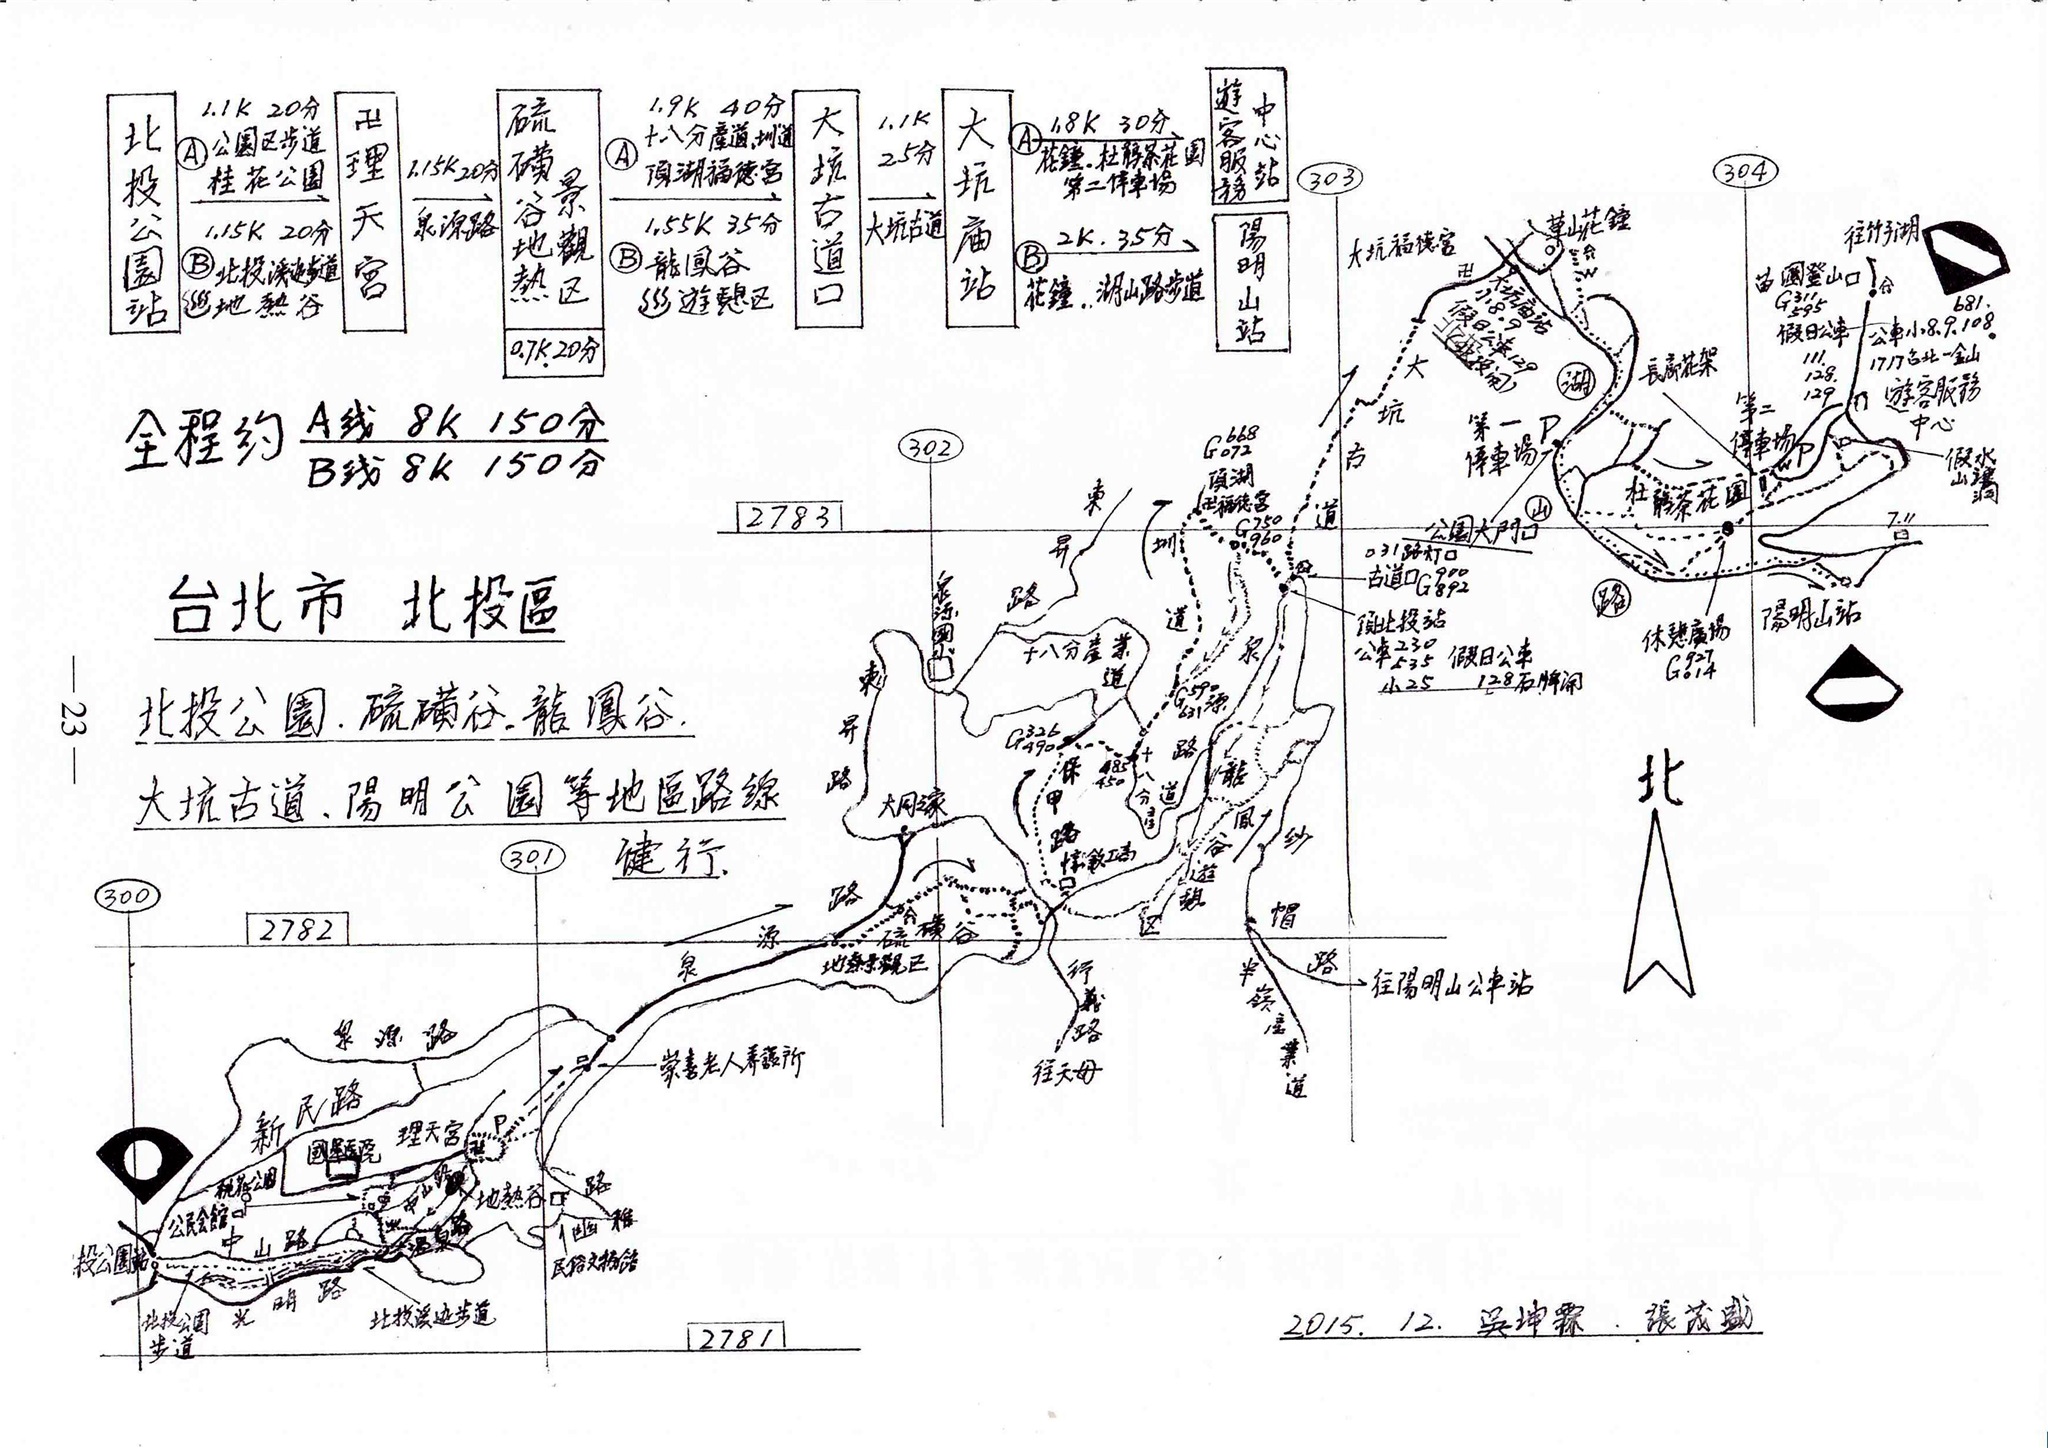 北投公園站
1.1K 20分
Ⓐ 公園区步道
桂花公園
1.15K 20分
Ⓑ 北投溪边步道
地熱谷
卍理天宮
1.15K 20分
泉源路
硫磺谷地熱
景觀区
0.7K.20分
1.9K 40分
Ⓐ 十八分產道.圳道
頂湖福德宮
1.55K 35分
Ⓑ 龍鳳谷
遊憩区
大坑古道口
1.1K
25分
大坑古道
大坑庙站
Ⓐ 1.8K 30分
花鐘.杜鵑茶花園
第二停車場
Ⓑ 2K.35分
花鐘..湖山路步道
遊客服務
中心站
陽明山站
全程約
A线 8K 150分
B线 8K 150分
台北市 北投區
北投公園.硫磺谷.龍鳳谷.
大坑古道.陽明公園等地區路線
健行.
—23—
300
301
302
303
304
2781
2782
2783
大坑福德宮
卍
草山花鐘
大坑庙站
小8.9
假日公車129
往竹子湖
苗圃登山口
G311
595
假日公車
111.
128.
129
681.
公車小8.9.108.
1717台北—金山
遊客服務
中心
長廊花架
第二
停車場
P
第一
停車場
P
假山
水濂洞
杜鵑茶花園
公園大門口
湖
山
路
7.11
陽明山站
休憩廣場
G927
014
G668
072
頂湖
卍福德宮
G750
960
圳
道
大
坑
古
道
031路灯口
古道口G900
G892
頂北投站
公車230
535
小25
假日公車
128石牌開
東
昇
路
泉源國小
十八分產業
道
G590
631
G326
490
485
450
保
甲
路
十八分
道
泉
源
路
龍
鳳
谷
遊
憩
区
東
昇
路
大同之家
惇敘工商
路
源
泉
硫磺谷
地熱景觀区
行
義
路
往天母
紗
帽
路
往陽明山公車站
半
嶺
產
業
道
北
泉源路
新民路
國軍醫院
理天宮
P
崇耆老人養護所
桃花公園
公民会館
中山路
溫泉路
地熱谷
路
幽雅
民俗文物館
投公園站
北投公園
步道
光明路
北投溪边步道
2015. 12. 吳坤霖. 張茂盛